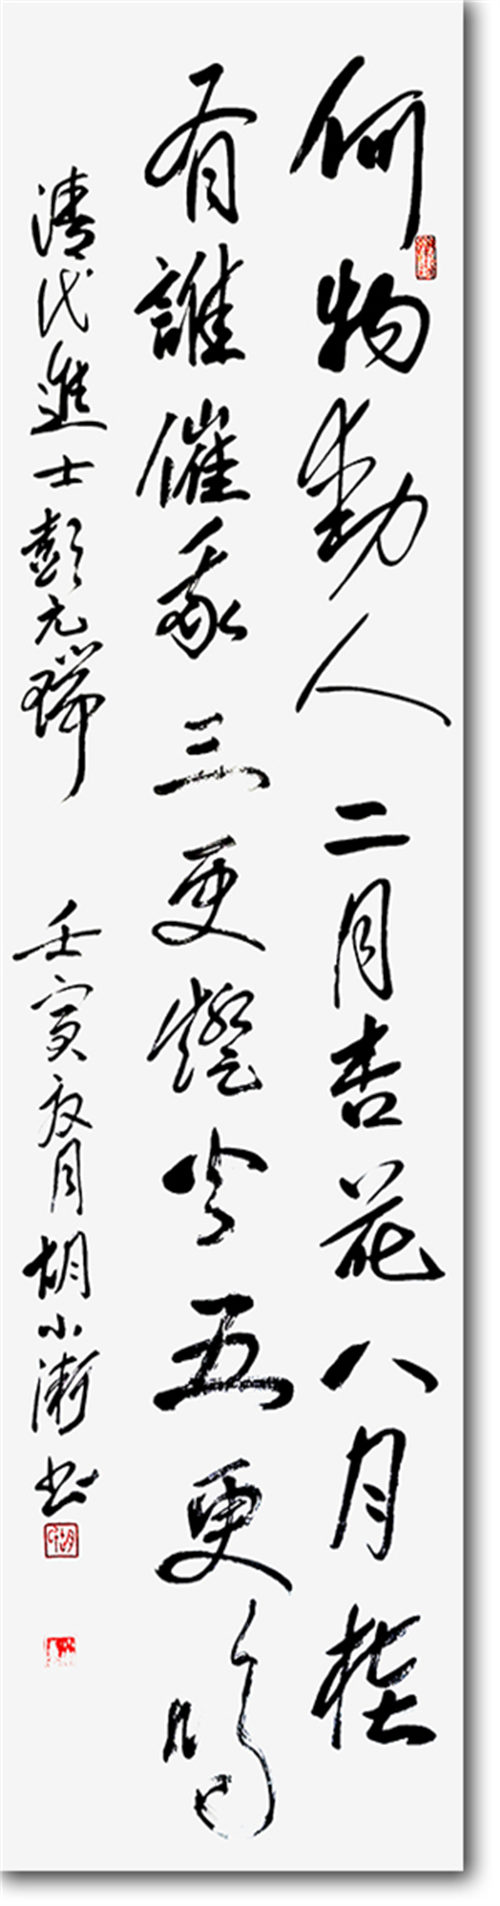 何物動人二月杏花八月桂
有誰催我三更燈火五更鷄
清代進士彭元瑞 壬寅夏月胡小漸书